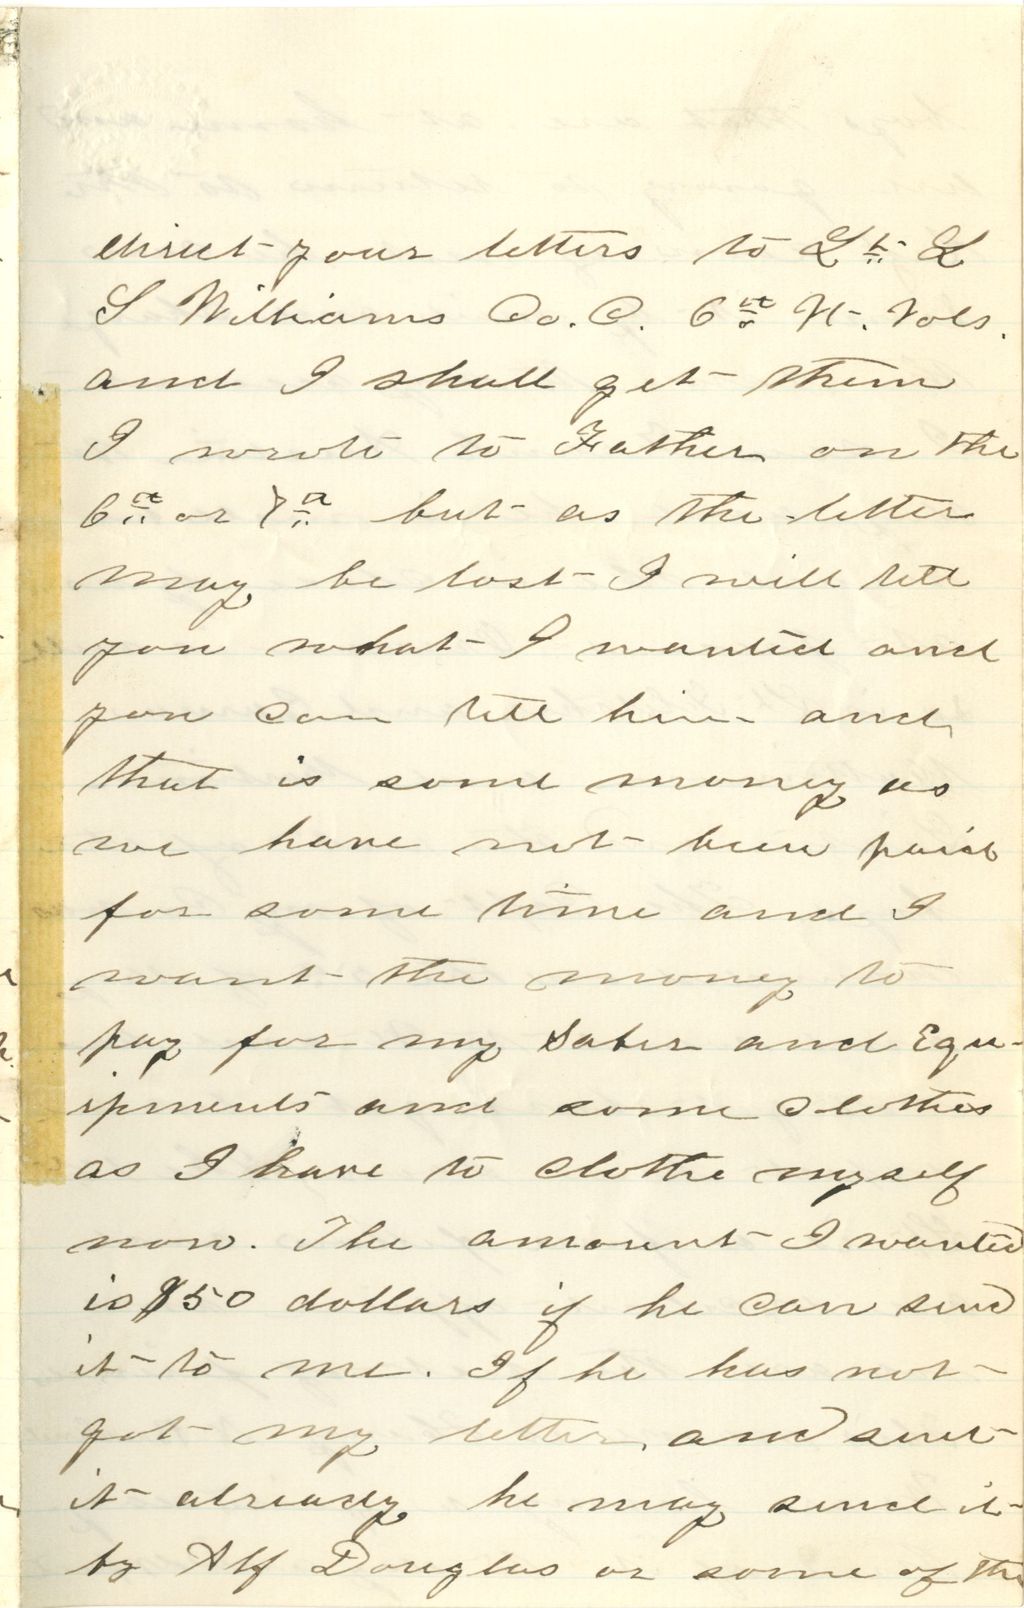 direct your letters to Lt. L
S Williams Co. C. 6th Vt. Vols.
and I shall get them
I wrote to Father on the
6th or 7th but as the letter
may be lost I will tell
you what I wanted and
you can tell him and
that is some money as
we have not been paid
for some time and I
want the money to
pay for my Saber and Equ-
ipments and some clothes
as I have to clothe myself
now. The amount I wanted
is $50 dollars if he can send
it to me. If he has not
got my letter and sent
it already he may send it
by Alf Douglas or some of the